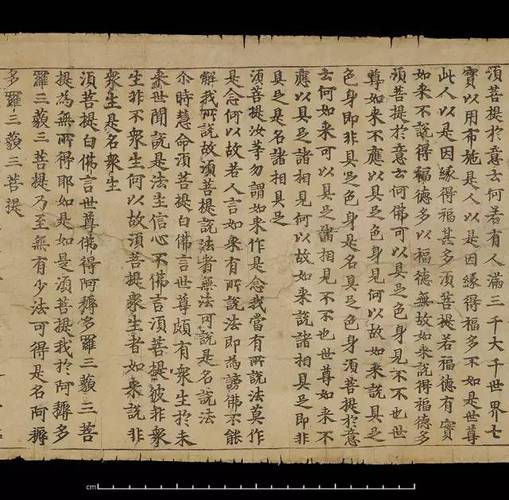 須菩提於意云何若有人滿三千大千世界七
寶以用布施是人以是因緣得福多不如是世尊
此人以是因緣得福甚多須菩提若福德有實
如來不說得福德多以福德無故如來說得福德多
須菩提於意云何佛可以具足色身見不不也世
尊如來不應以具足色身見何以故如來說具足
色身即非具足色身是名具足色身須菩提於意
云何如來可以具足諸相見不不也世尊如來不
應以具足諸相見何以故如來說諸相具足即非
具足是名諸相具足
須菩提汝等勿謂如來作是念我當有所說法莫作
是念何以故若人言如來有所說法即為謗佛不能
解我所說故須菩提說法者無法可說是名說法
尒時慧命須菩提白佛言世尊頗有衆生於未
來世聞說是法生信心不佛言須菩提彼非衆
生非不衆生何以故須菩提衆生衆生者如來說非
衆生是名衆生
須菩提白佛言世尊佛得阿耨多羅三藐三菩
提為無所得耶如是如是須菩提我於阿耨多
羅三藐三菩提乃至無有少法可得是名阿耨
多羅三藐三菩提
cm